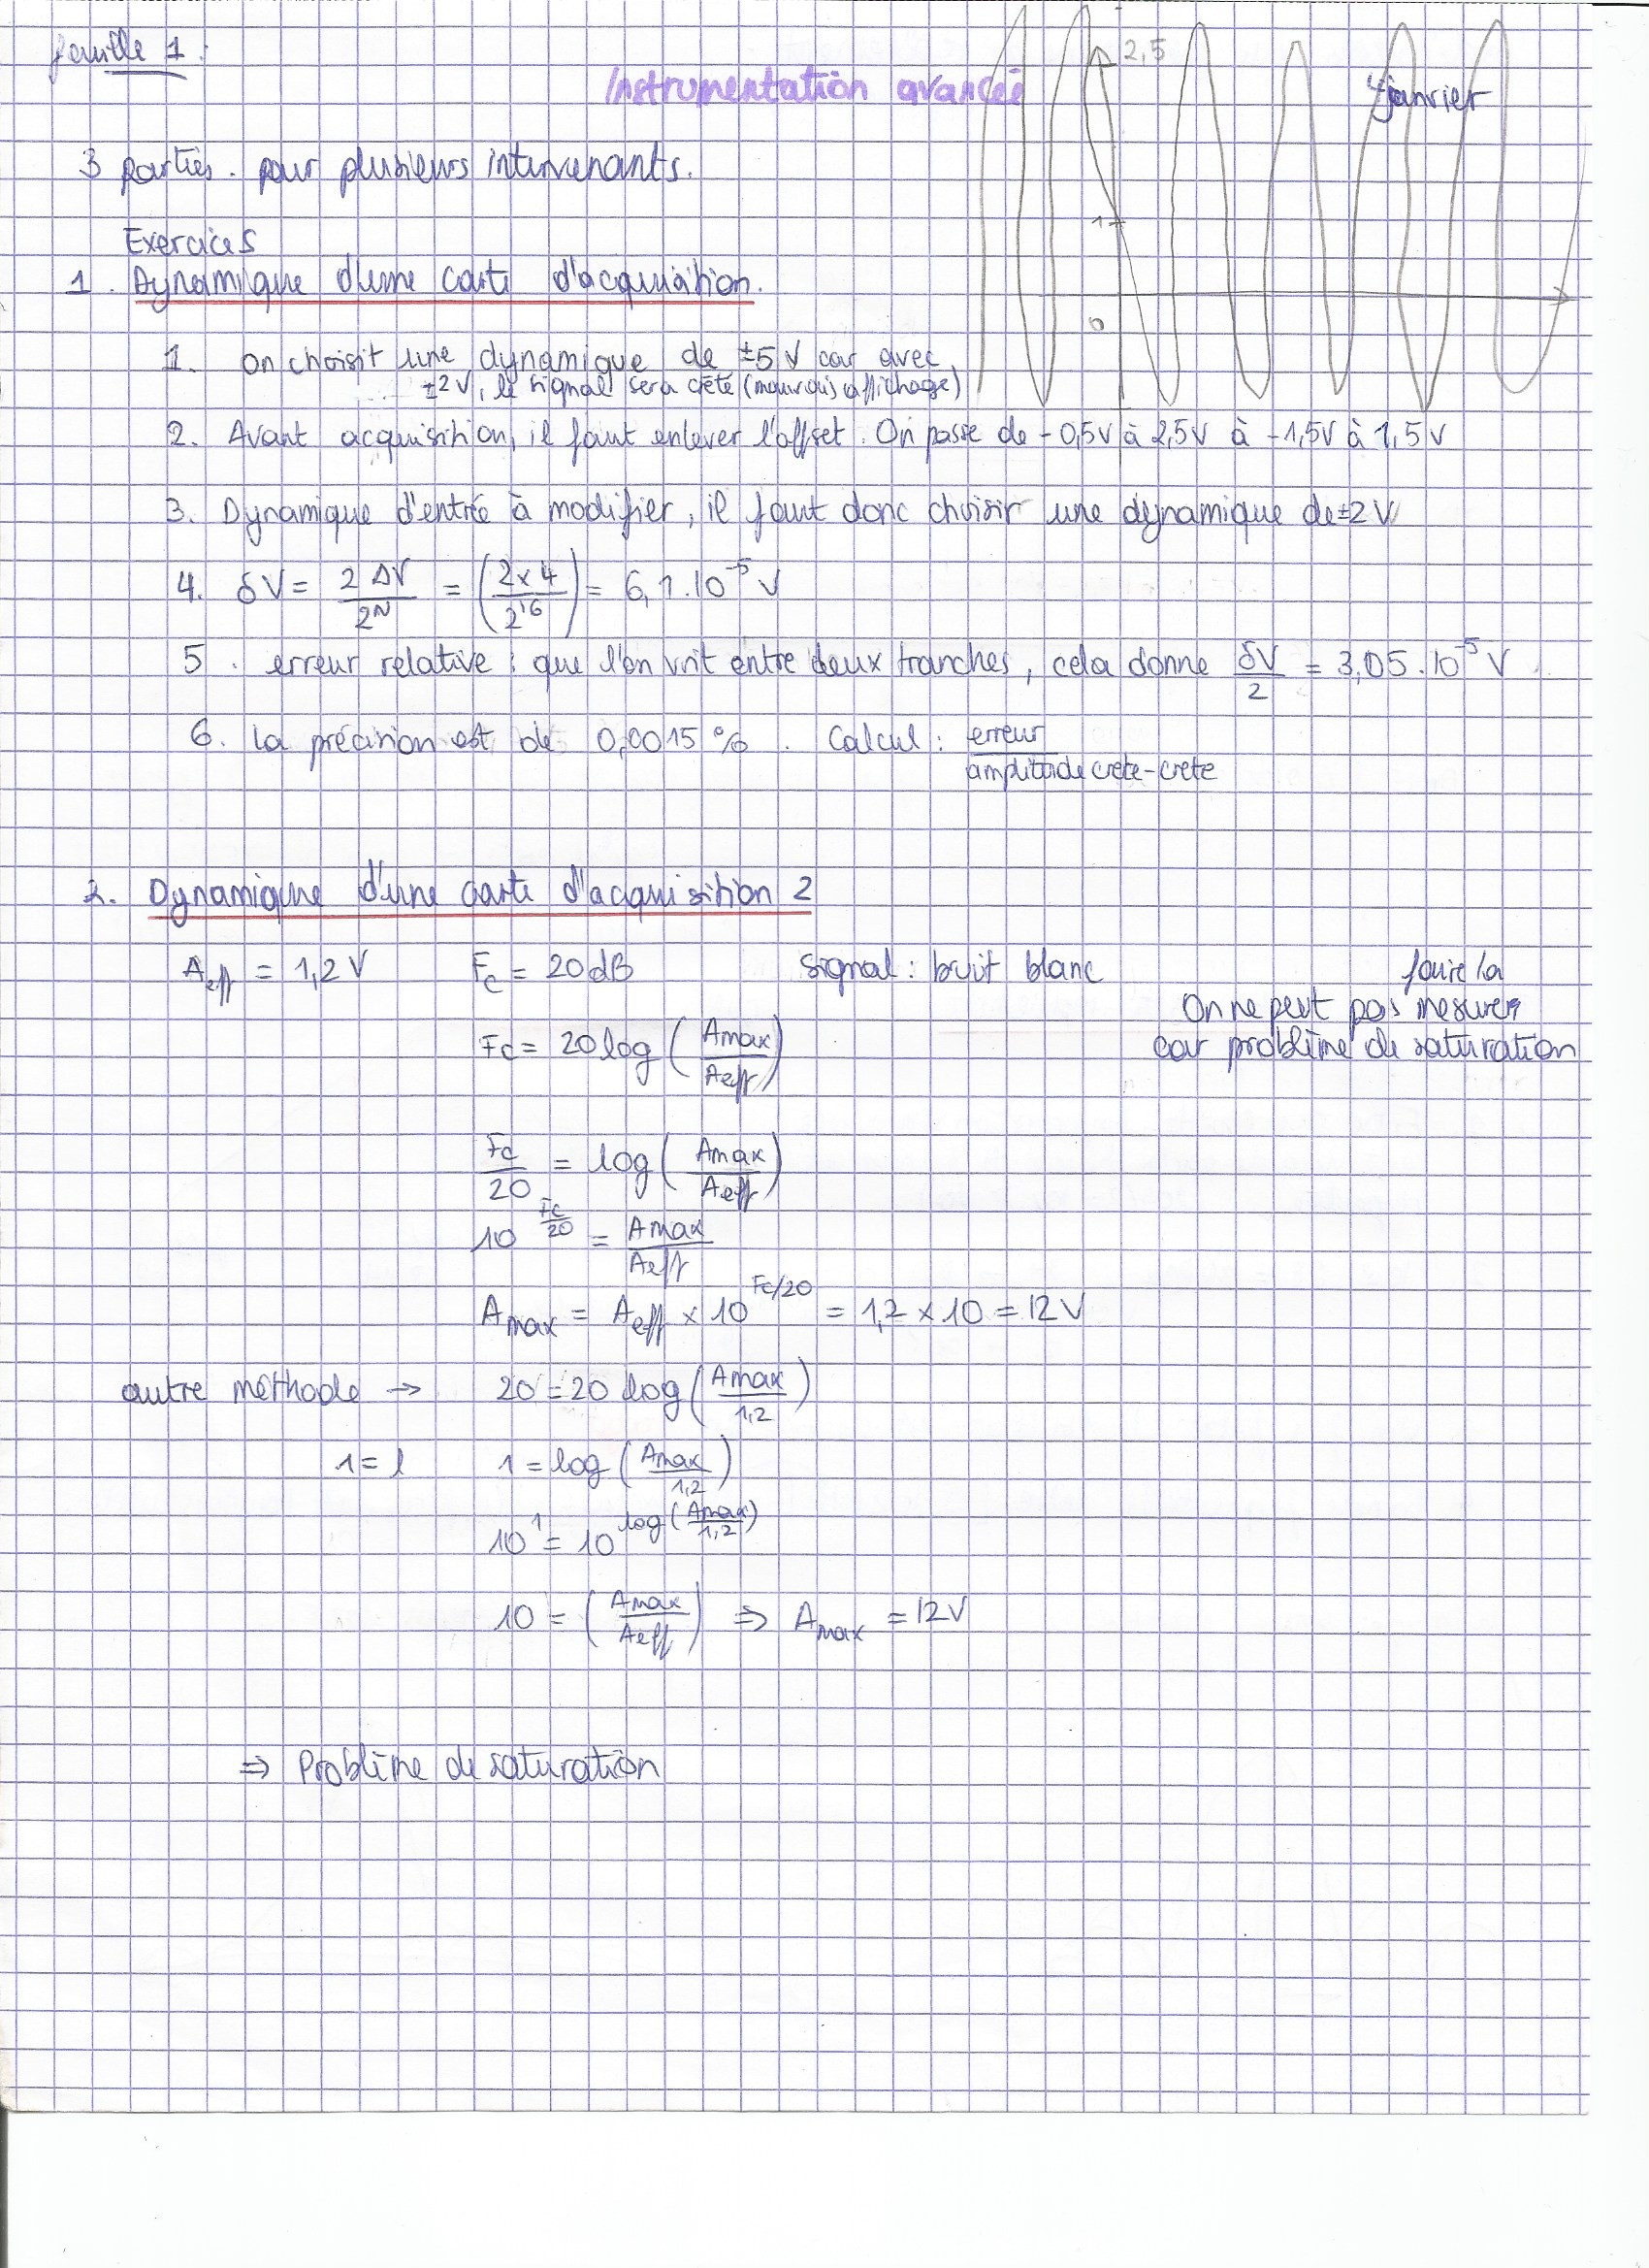 feuille 1 :
2,5
Instrumentation avancée
4 janvier
3 parties. pour plusieurs intervenants.
1
0
Exercices
1. Dynamique d'une carte d'acquisition.
1. On choisit une dynamique de ±5 V car avec
±2V, le signal sera crêté (mauvais affichage)
2. Avant acquisition, il faut enlever l'offset. On passe de -0,5V à 2,5V à -1,5V à 1,5V
3. Dynamique d'entrée à modifier, il faut donc choisir une dynamique de ±2V
4. δV = 2 ΔV / 2^N = (2x4 / 2^16) = 6,1.10^-5 V
5. erreur relative : que l'on voit entre deux tranches, cela donne δV/2 = 3,05.10^-5 V
6. la précision est de 0,0015 %. Calcul : erreur / amplitude crête-crête
2. Dynamique d'une carte d'acquisition 2
A_eff = 1,2 V F_c = 20 dB signal : bruit blanc
faire la
On ne peut pas mesurer
car problème de saturation
Fc = 20 log (Amax / Aeff)
Fc/20 = log (Amax / Aeff)
10^(Fc/20) = Amax / Aeff
A_max = A_eff × 10^(Fc/20) = 1,2 × 10 = 12 V
autre méthode → 20 = 20 log (Amax / 1,2)
1 = l 1 = log (Amax / 1,2)
10^1 = 10^log(Amax / 1,2)
10 = (Amax / Aeff) ⇒ A_max = 12V
⇒ Problème de saturation